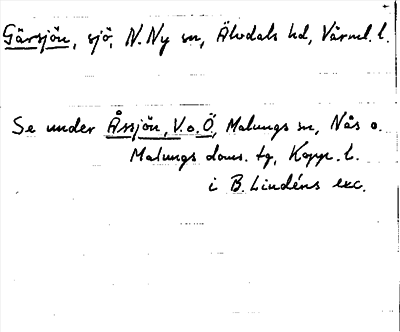 Gärsjön, sjö, N. Ny sn, Älvdals hd, Värml. l.
Se under Åssjön, V. o. Ö, Malungs sn, Nås o.
Malungs doms. tg, Kopp. l.
i B. Lindéns exc.